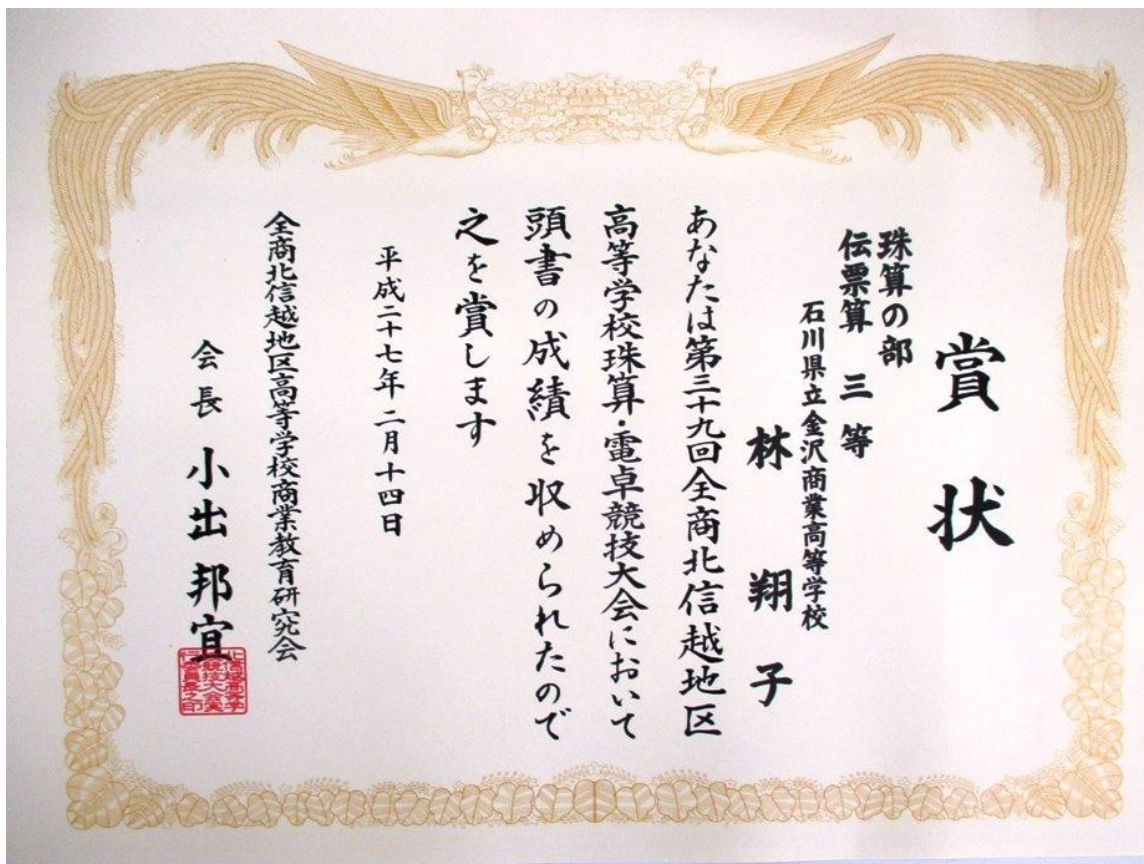 賞状
珠算の部
伝票算 三等
石川県立金沢商業高等学校
林翔子
あなたは第三十九回全商北信越地区
高等学校珠算・電卓競技大会において
頭書の成績を収められたので
之を賞します
平成二十七年二月十四日
全商北信越地区高等学校商業教育研究会
会長 小出邦宜